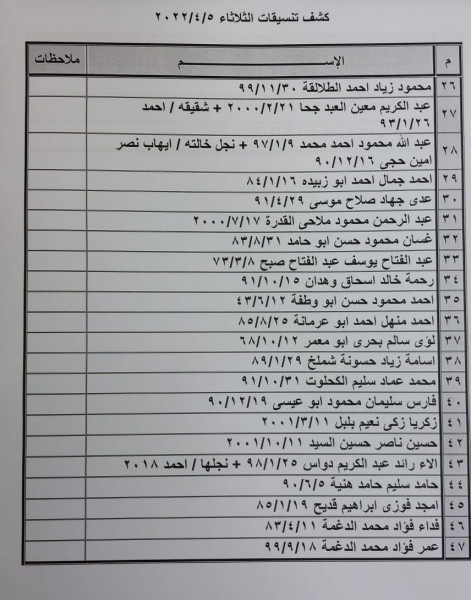 كشف تنسيقات الثلاثاء ٢٠٢٢/٤/٥
م الإســـــــم ملاحظات
٢٦ محمود زياد احمد الطلالقة ٩٩/١١/٣٠
٢٧ عبد الكريم معين العبد جحا ٢٠٠٠/٢/٢١ + شقيقه / احمد
٩٣/١/٢٦
٢٨ عبد الله محمود احمد محمد ٩٧/١/٩ + نجل خالته / ايهاب نصر
امين حجى ٩٠/١٢/١٦
٢٩ احمد جمال احمد ابو زبيده ٨٤/١/١٦
٣٠ عدى جهاد صلاح موسى ٩١/٤/٢٩
٣١ عبد الرحمن محمود ملاحى القدرة ٢٠٠٠/٧/١٧
٣٢ غسان محمود حسن ابو حامد ٨٣/٨/٣١
٣٣ عبد الفتاح يوسف عبد الفتاح صبح ٧٣/٣/٨
٣٤ رحمة خالد اسحاق وهدان ٩١/١٠/١٥
٣٥ احمد محمود حسن ابو وطفة ٤٣/٦/١٢
٣٦ احمد منهل احمد ابو عرمانة ٨٥/٨/٢٥
٣٧ لؤى سالم بحرى ابو معمر ٦٨/١٠/١٢
٣٨ اسامة زياد حسونة شملخ ٨٩/١/٢٩
٣٩ محمد عماد سليم الكحلوت ٩١/١٠/٣١
٤٠ فارس سليمان محمود ابو عيسى ٩٠/١٢/١٩
٤١ زكريا زكى نعيم بلبل ٢٠٠١/٣/١١
٤٢ حسين ناصر حسين السيد ٢٠٠١/١٠/١١
٤٣ الاء رائد عبد الكريم دواس ٩٨/١/٢٥ + نجلها / احمد ٢٠١٨
٤٤ حامد سليم حامد هنية ٩٠/٦/٥
٤٥ امجد فوزى ابراهيم قديح ٨٥/١/١٩
٤٦ فداء فؤاد محمد الدغمة ٨٣/٤/١١
٤٧ عمر فؤاد محمد الدغمة ٩٩/٩/١٨